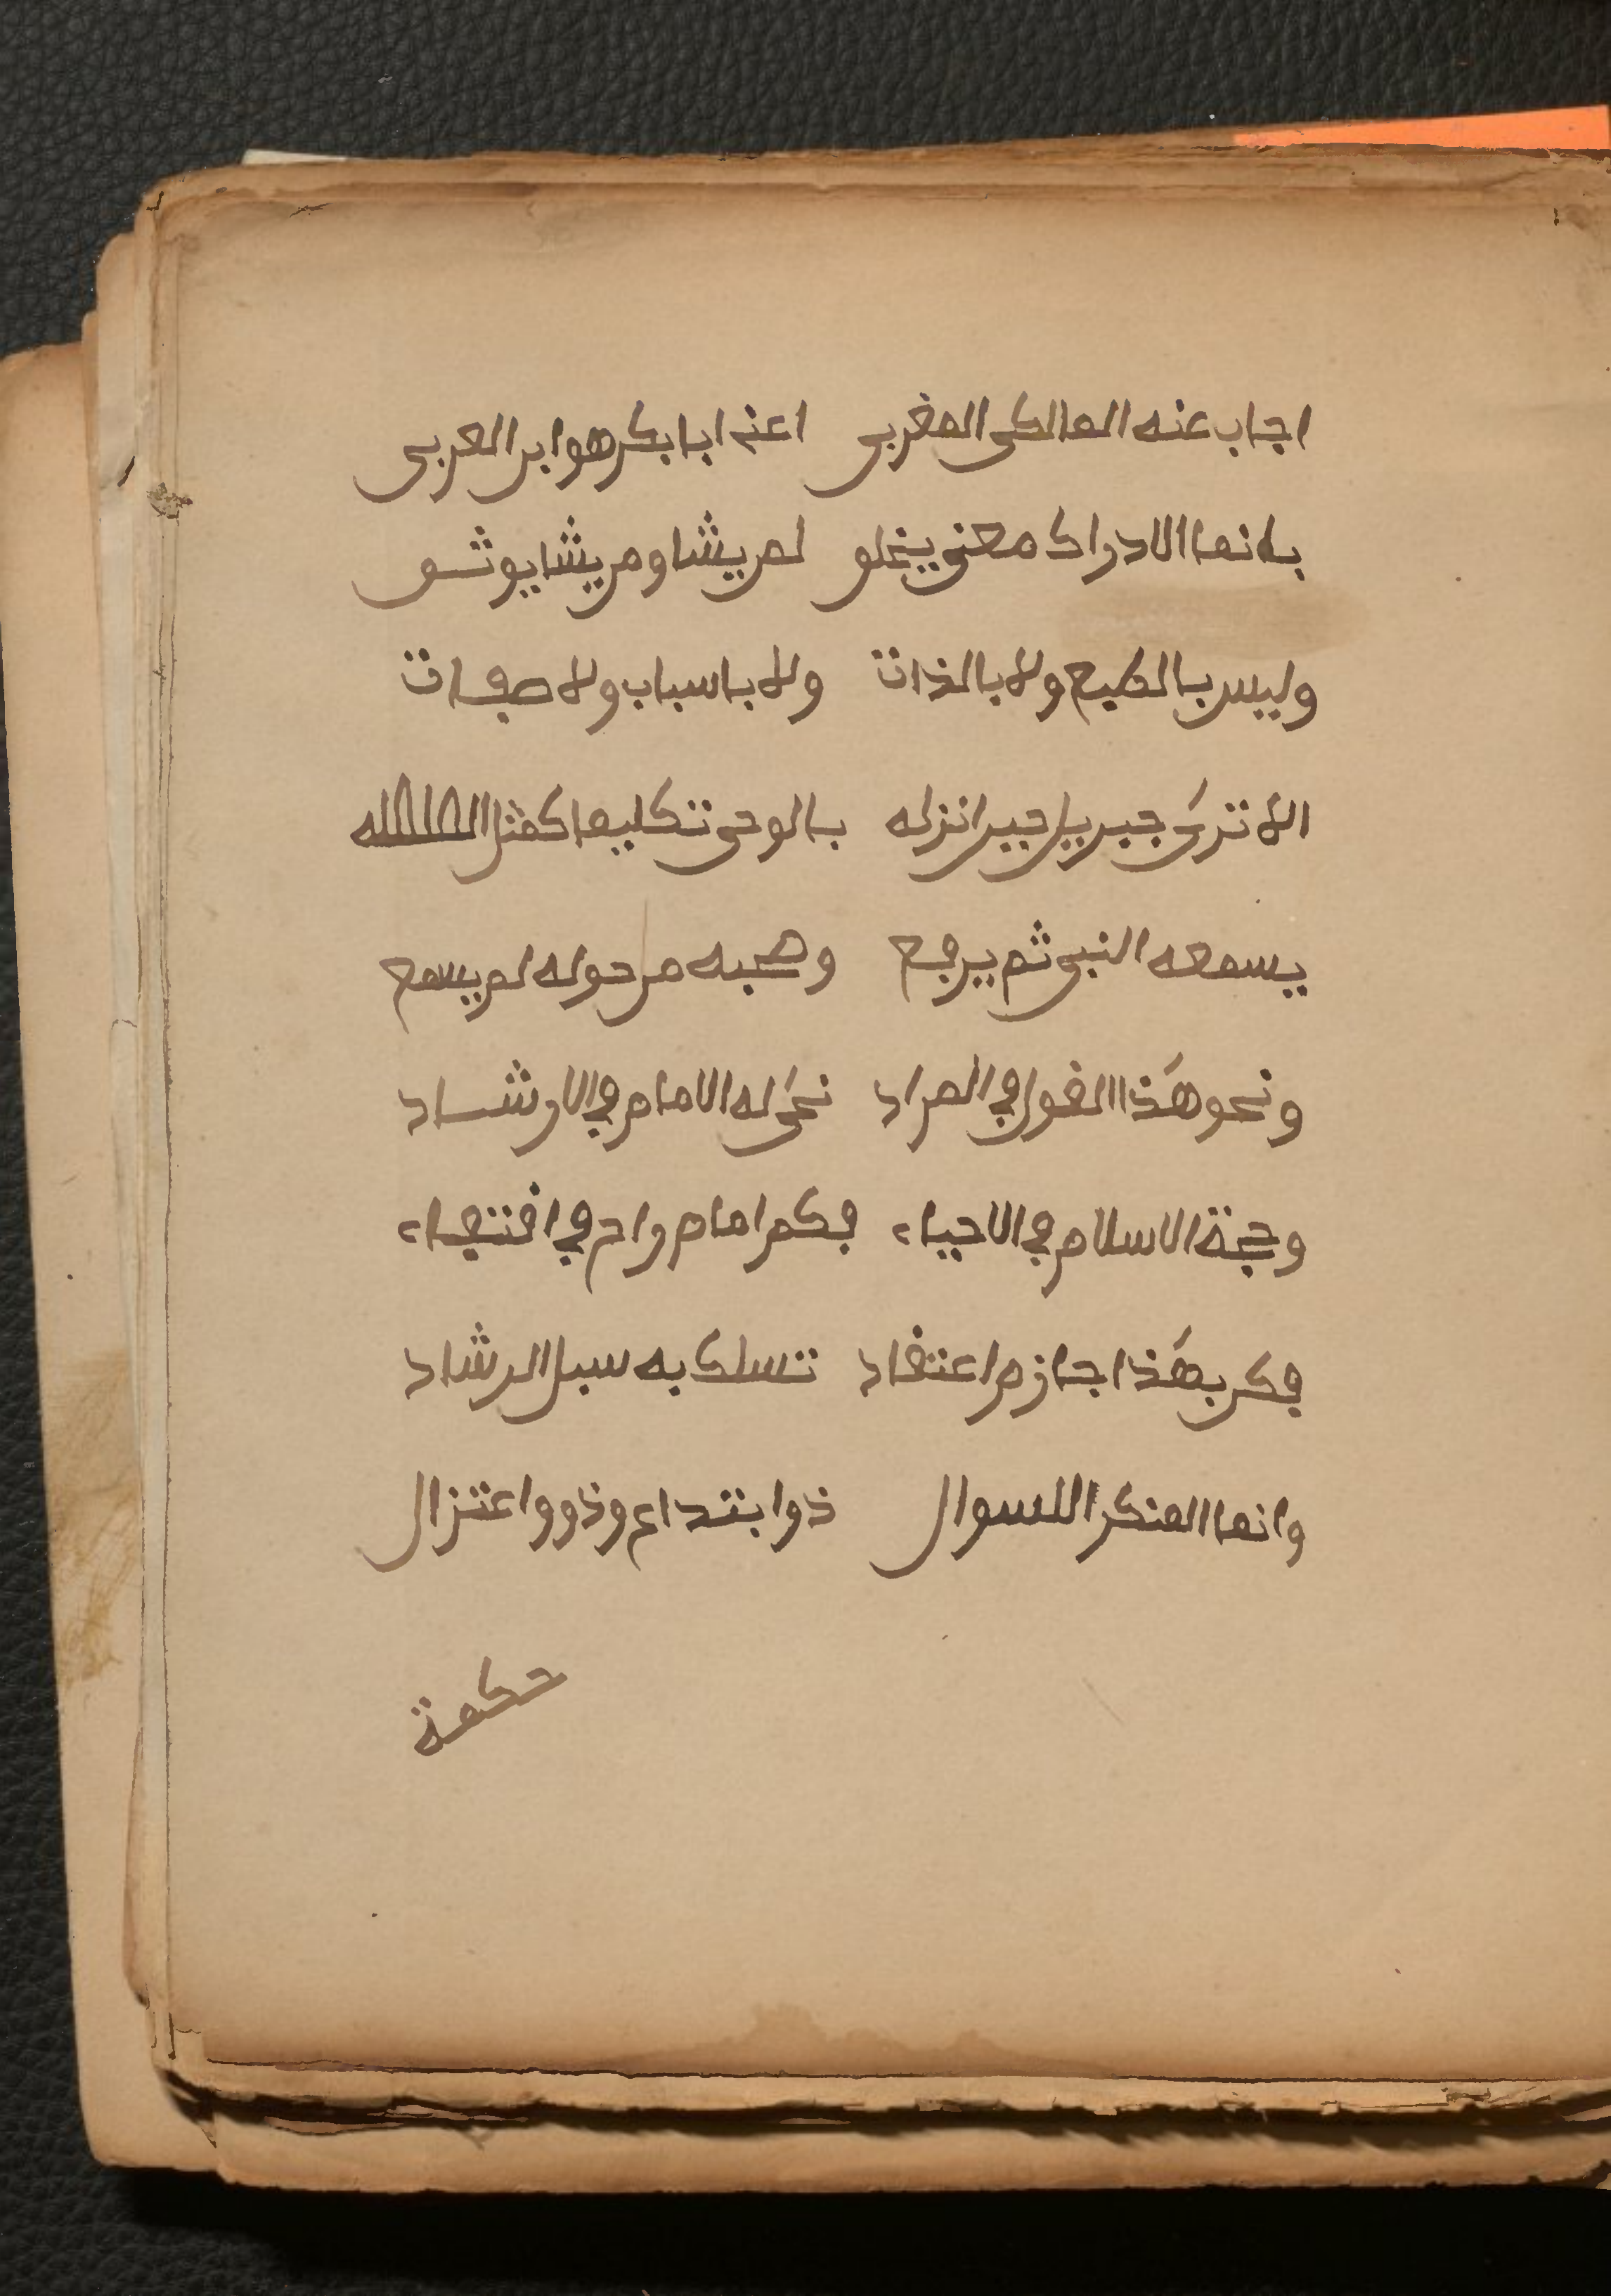 اجاب عنه المالكى المغربى اعنى ابا بكر هو ابن العربى
بانما الادراك معنى يخلق لمن يشا ومن يشا يوثق
وليس بالطبع ولا بالذات ولا باسباب ولا صفات
الا ترى جبريل حين انزله بالوحى تكليما كمثل
يسمعه النبى ثم يرجع وصحبه من حوله لم يسمع
ونحو هذا القول في المراد نحى له الامام في الارشاد
وحجة الاسلام في الاحياء فكم امام راح في اقتفاء
فكن بهذا جازم اعتقاد تسلك به سبل الرشاد
وانما المنكر السوال ذوا بتداع وذو واعتزال
حكمة